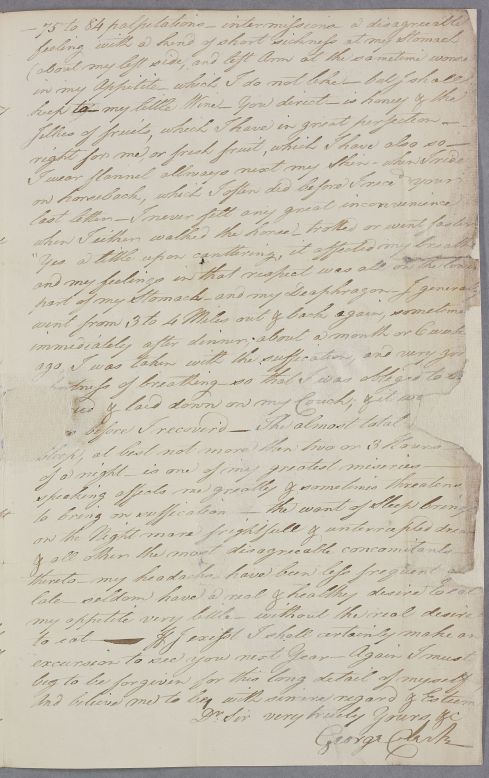 75 to 84 palpitations - intermissions a disagreeable
feeling with a kind of short sickness at my Stomach
(about my left side, and left Arm at the sametime worse
in my Appetite which I do not like - but shall
keep to my little Wine - You direct - is honey & the
Jellies of fruits, which I have in great perfection -
right for me or fresh fruit, which I have also so -
I wear flannel allways next my Skin - when I ride
on horseback, which I often did before I rec'd your
last letter - I never felt any great inconvenience
when I either walked the horse, trotted or went faster
Yes a little upon cantering, it affected my breath
and my feelings in that respect was all on the
part of my Stomach - and my Deaphragm - I generally
went from 3 to 4 Miles out & back again, sometimes
immediately after dinner; about a month or 6 weeks
ago, I was taken with the suffication, and very
ness of breathing so that I was obliged to
& laid down on my Couch, & it
before I recoverd - The almost total
Sleep, at best not more then two or 3 Hours
of a night - is one of my greatest miseries -
speaking affects me greatly & sometimes threatens
to bring on suffication - the want of Sleep brings
on the Night mare frightfull & interrupted
& all other the most disagreeable concomitants
thereto - my headachs have been less frequent
late - seldom have a real & healthy desire to eat
my appetite very little - without the real desire
to eat - If I exist I shall certainly make an
excursion to see you next Year - Again I must
beg to be forgiven for this long detail of myself
And believe me to be, with sincere regard & Esteem
Dr. Sir very truely Yours, &c
George Clark